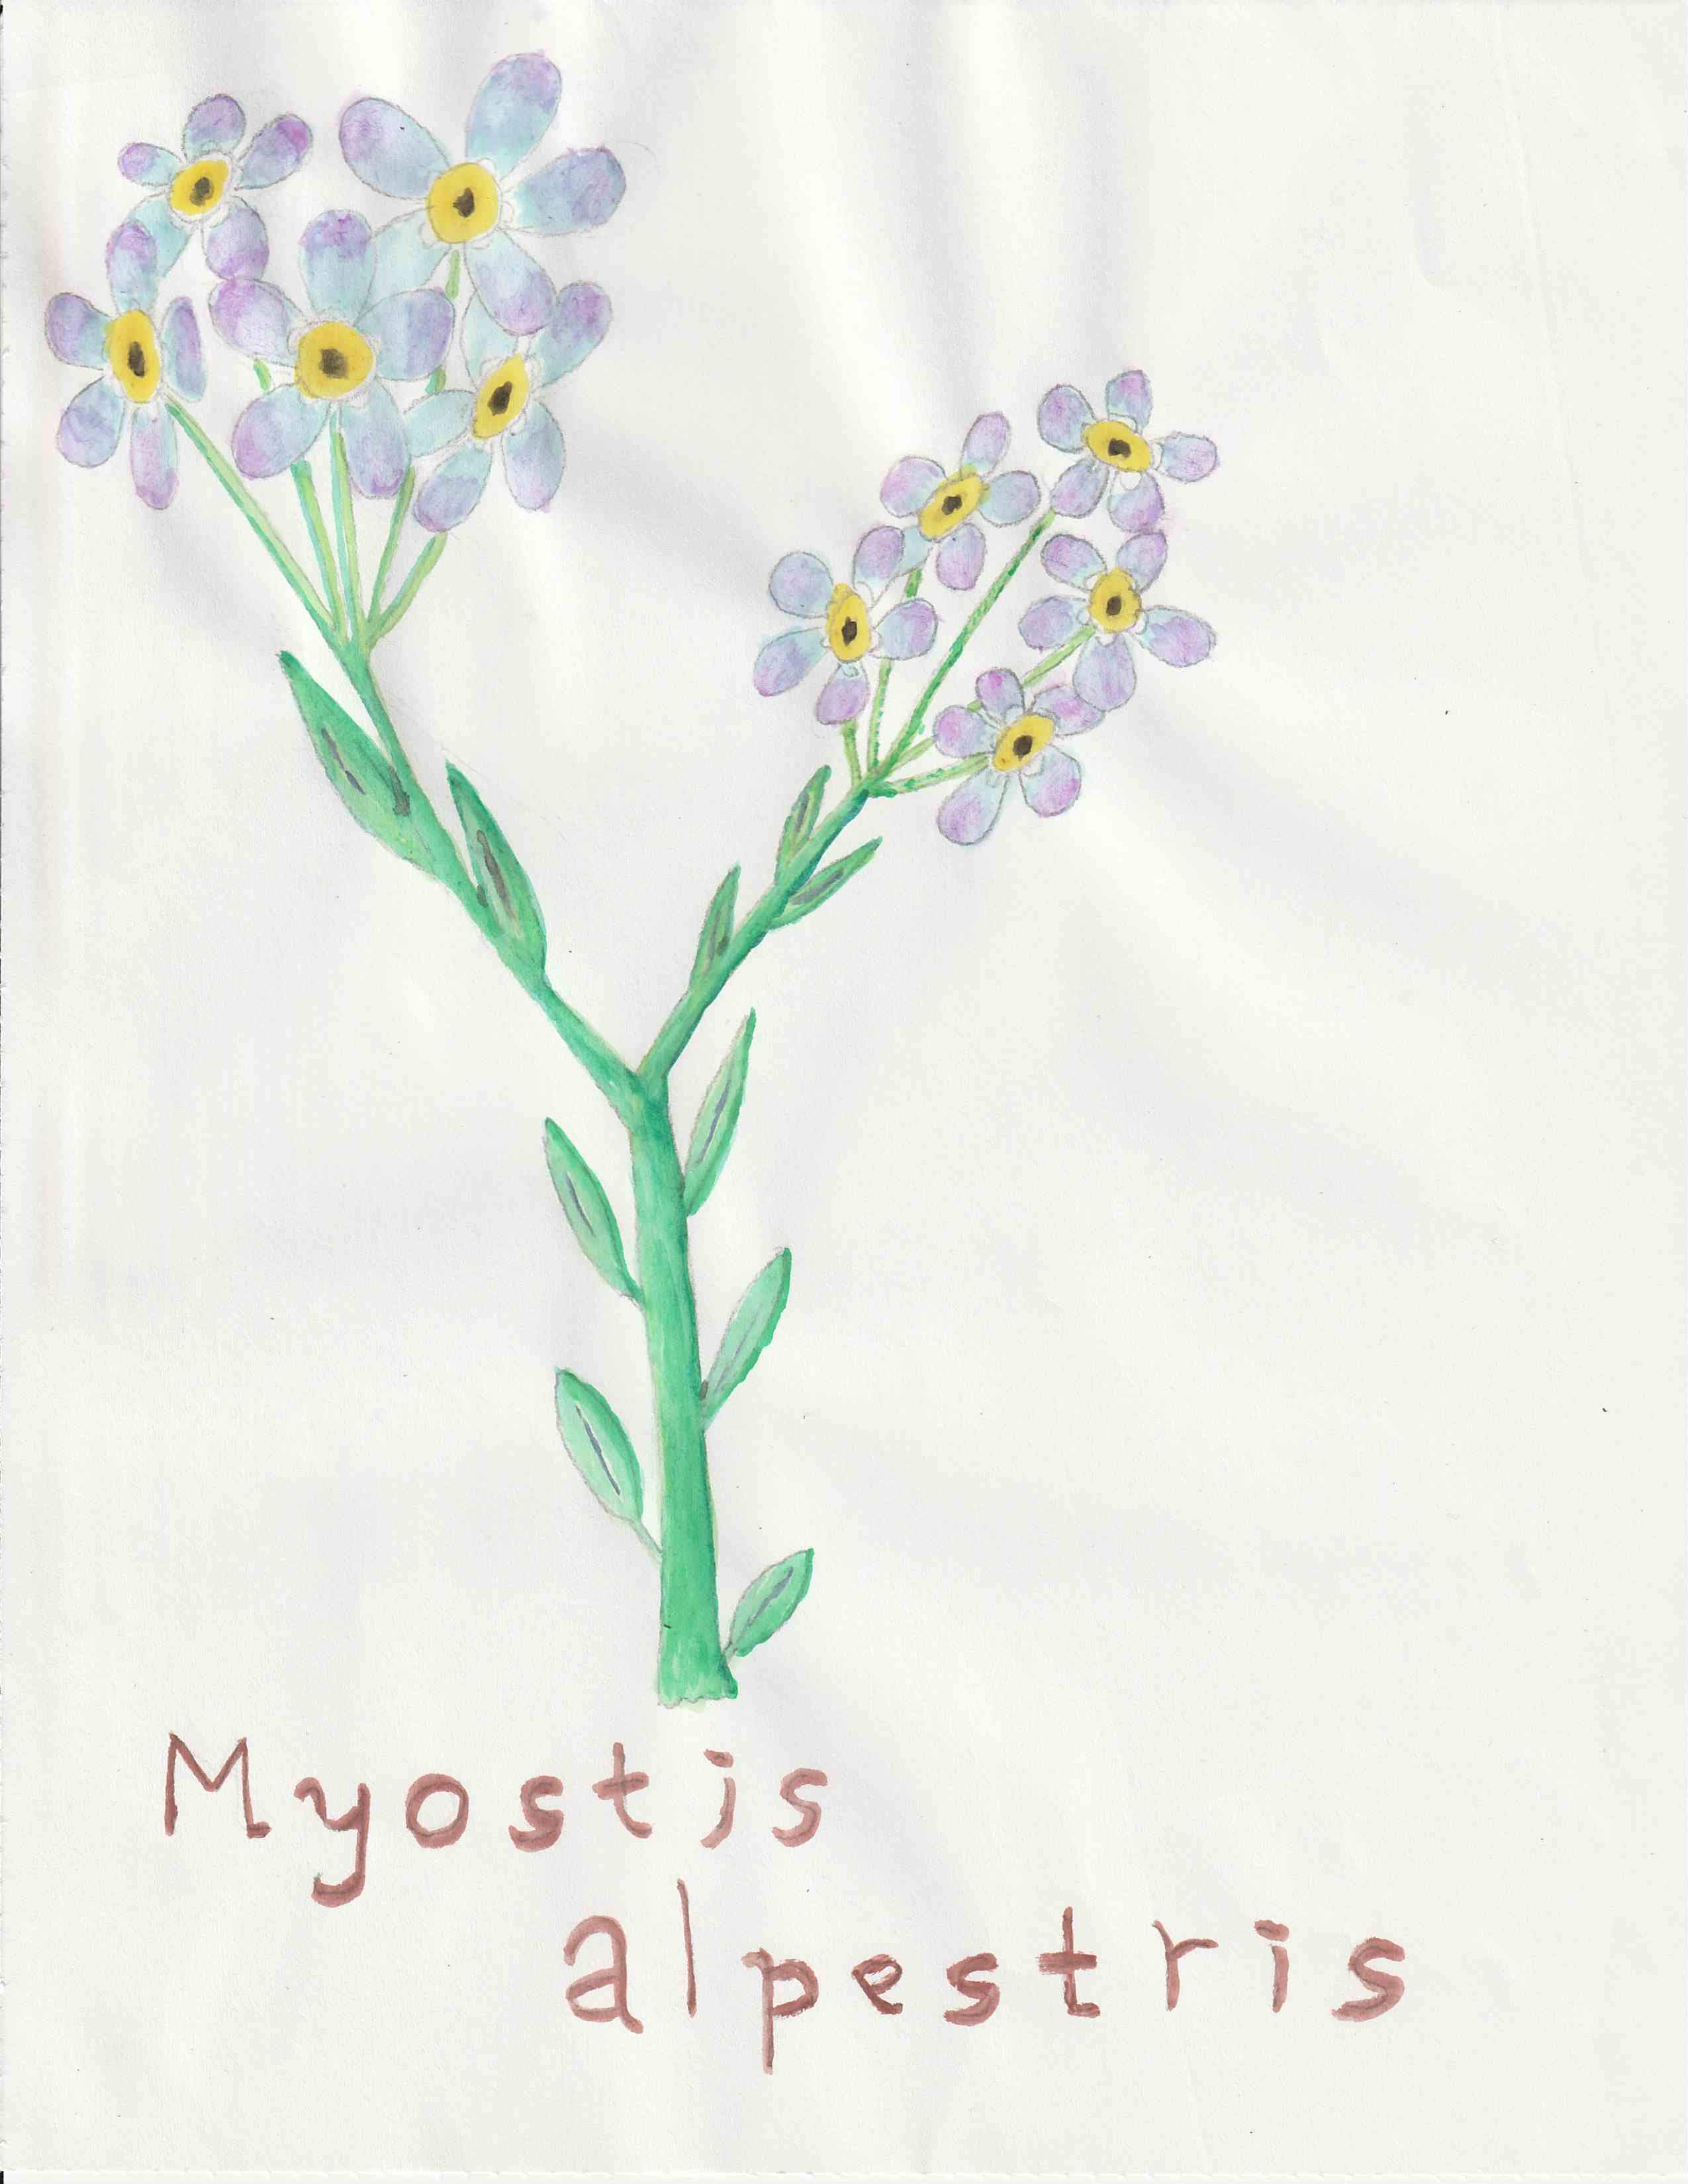 Myostis
alpestris